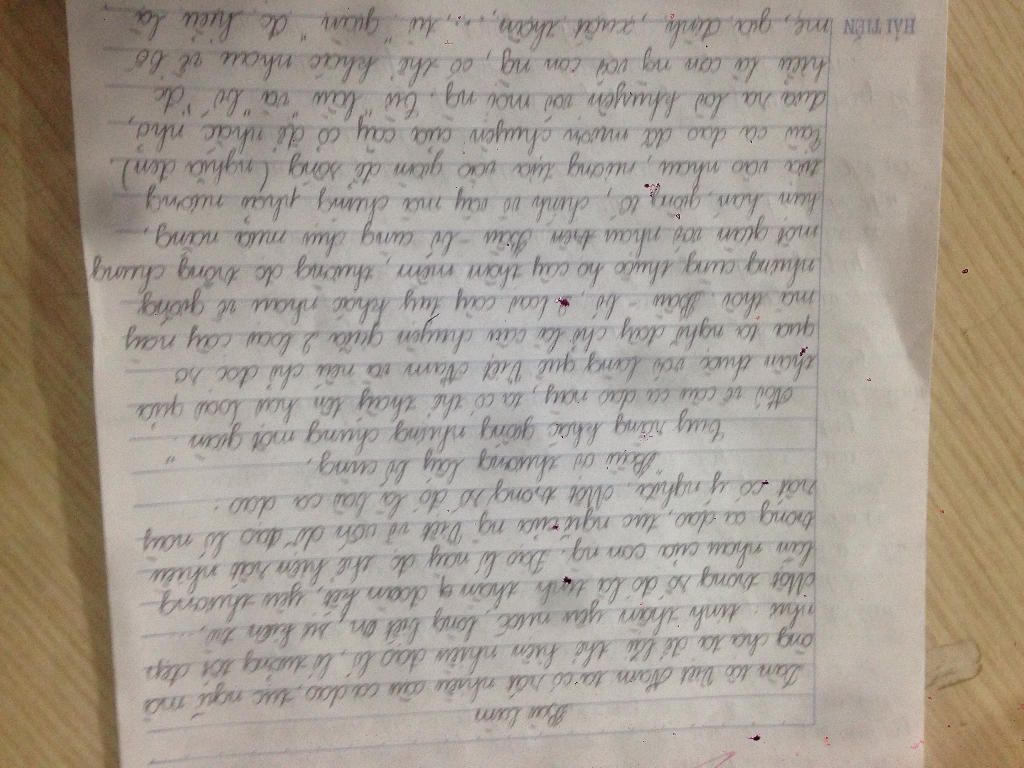 Bài làm
Dân tộc Việt Nam ta có rất nhiều câu ca dao, tục ngữ mà
ông cha ta để lại thể hiện nhiều đạo lí, lí tưởng tốt đẹp
như tinh thần yêu nước, lòng biết ơn, sự hiền từ, ....
Một trong số đó là tinh thần đoàn kết, yêu thương
lẫn nhau của con ng. Đạo lí này đc thể hiện rất nhiều
trong ca dao, tục ngữ của ng Việt vì vốn dĩ đạo lí này
rất có ý nghĩa. Một trong số đó là bài ca dao:
"Bầu ơi thương lấy bí cùng,
Tuy rằng khác giống nhưng chung một giàn."
Nói về câu ca dao này, ta có thể thấy tên hai loại quả
thân thuộc với làng quê Việt Nam và nếu chỉ đọc sơ
qua ta nghĩ đây chỉ là câu chuyện giữa 2 loại cây này
mà thôi. Bầu - bí, 2 loài cây tuy khác nhau về giống
nhưng cùng thuộc họ cây thân mềm, thường đc trồng chung
một giàn với nhau nên Bầu - bí cùng chịu mưa nắng,
hạn hán, giông tố, chính vì vậy mà chúng phải nương
tựa vào nhau, nương tựa vào giàn để sống (nghĩa đen).
Câu ca dao đã mượn chuyện của cây cỏ để nhắc nhở,
đưa ra lời khuyên với mọi ng. Từ "bầu" và "bí" đc
hiểu là con ng với con ng, có thể khác nhau về bố
mẹ, gia đình, xuất thân, ..., từ "giàn" đc hiểu là
HẢI TIẾN